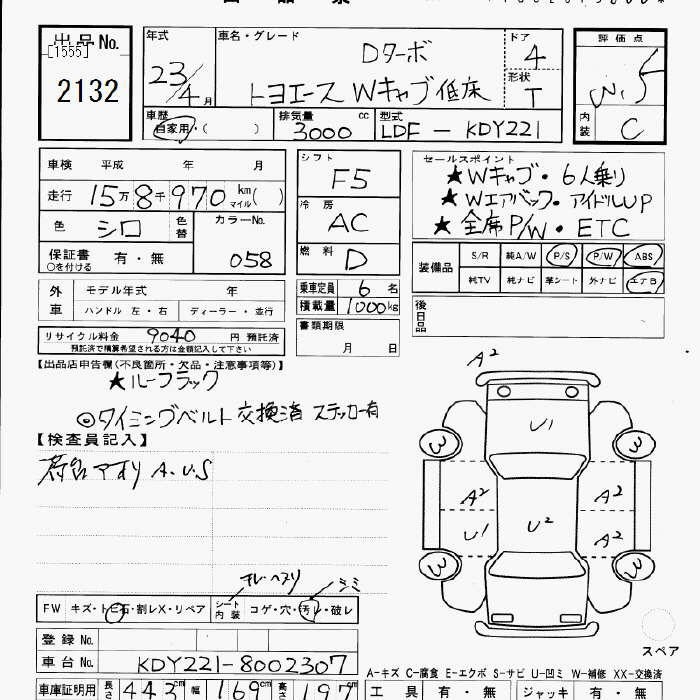 出品No.
[1555]
2132
年式
23/4月
車名・グレード
Dターボ
トヨエース Wキャブ低床
ドア
4
形状
T
評価点
内装
C
車歴
自家用・( )
排気量
3000 cc
型式
LDF-KDY221
車検 平成 年 月
走行 15万8千970 km マイル( )
色 シロ 色替 カラーNo. 058
保証書 ○を付ける 有・無
シフト
F5
冷房
AC
燃料
D
セールスポイント
★Wキャブ・6人乗り
★Wエアバック・アイドルUP
★全席P/W・ETC
装備品 S/R 純A/W P/S P/W ABS
純TV 純ナビ 革シート 外ナビ エアB
外車 モデル年式 年
ハンドル 左・右 ディーラー・並行
乗車定員 6名
積載量 1000kg
後日品
リサイクル料金 9040 円 預託済
預託済で積算希望される方は金額記入して下さい
書類期限
月 日
【出品店申告欄(不良箇所・欠品・注意事項等)】
★ルーフラック
◎タイミングベルト交換済 ステッカー有
【検査員記入】
荷台アオリ A.U.S
A2
U1
W W
A2 A2
U1 U2 A2
W W
スペア
シミ
FW キズ・トビ石・割レX・リペア シート内装 コゲ・穴・汚レ・破レ
登録No.
車台No. KDY221-8002307
車庫証明用 長さ 443 cm 幅 169 cm 高さ 197 cm
A-キズ C-腐食 E-エクボ S-サビ U-凹ミ W-補修 XX-交換済
工具 有・無 ジャッキ 有・無